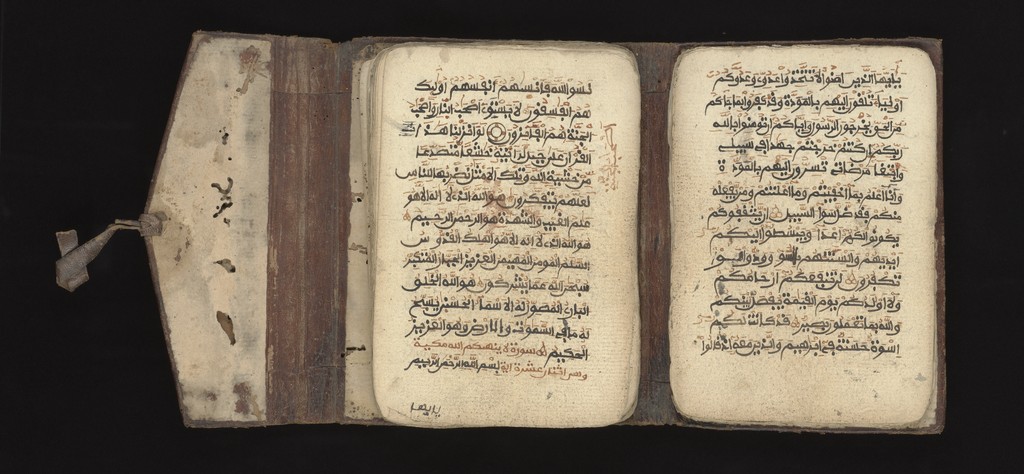 نسوا الله فانسيهم انفسهم اوليك
هم الفسقون لا يستوي اصحب النار واصحب
الجنة هم الفايزون لو انزلنا هذا
القران على جبل لرايته خشعا متصدعا
من خشية الله وتلك الامثل نضربها للناس
لعلهم يتفكرون هو الله الذي لا اله الا هو
علم الغيب والشهدة هو الرحمن الرحيم
هو الله الذي لا اله الا هو الملك القدوس
السلم المومن المهيمن العزيز الجبار المتكبر
سبحن الله عما يشركون هو الله الخلق
الباري المصور له الاسما الحسنى يسبح
له ما في السموت والارض وهو العزيز
الحكيم سورة لا ينهيكم الله مكية
عشرة اية بسم الله الرحمن الرحيم
يايها
يايها الذين امنوا لا تتخذوا عدوي وعدوكم
اوليا تلقون اليهم بالمودة وقد كفروا بما جاكم
من الحق يخرجون الرسول واياكم ان تومنوا بالله
ربكم ان كنتم خرجتم جهدا في سبيلي
وابتغا مرضاتي تسرون اليهم بالمودة
وانا اعلم بما اخفيتم وما اعلنتم ومن يفعله
منكم فقد ضل سوا السبيل ان يثقفوكم
يكونوا لكم اعدا ويبسطوا اليكم
ايديهم والسنتهم بالسو وودوا لو
تكفرون لن تنفعكم ارحامكم
ولا اولدكم يوم القيمة يفصل بينكم
والله بما تعملون بصير قد كانت لكم
اسوة حسنة في ابرهيم والذين معه اذ قالوا